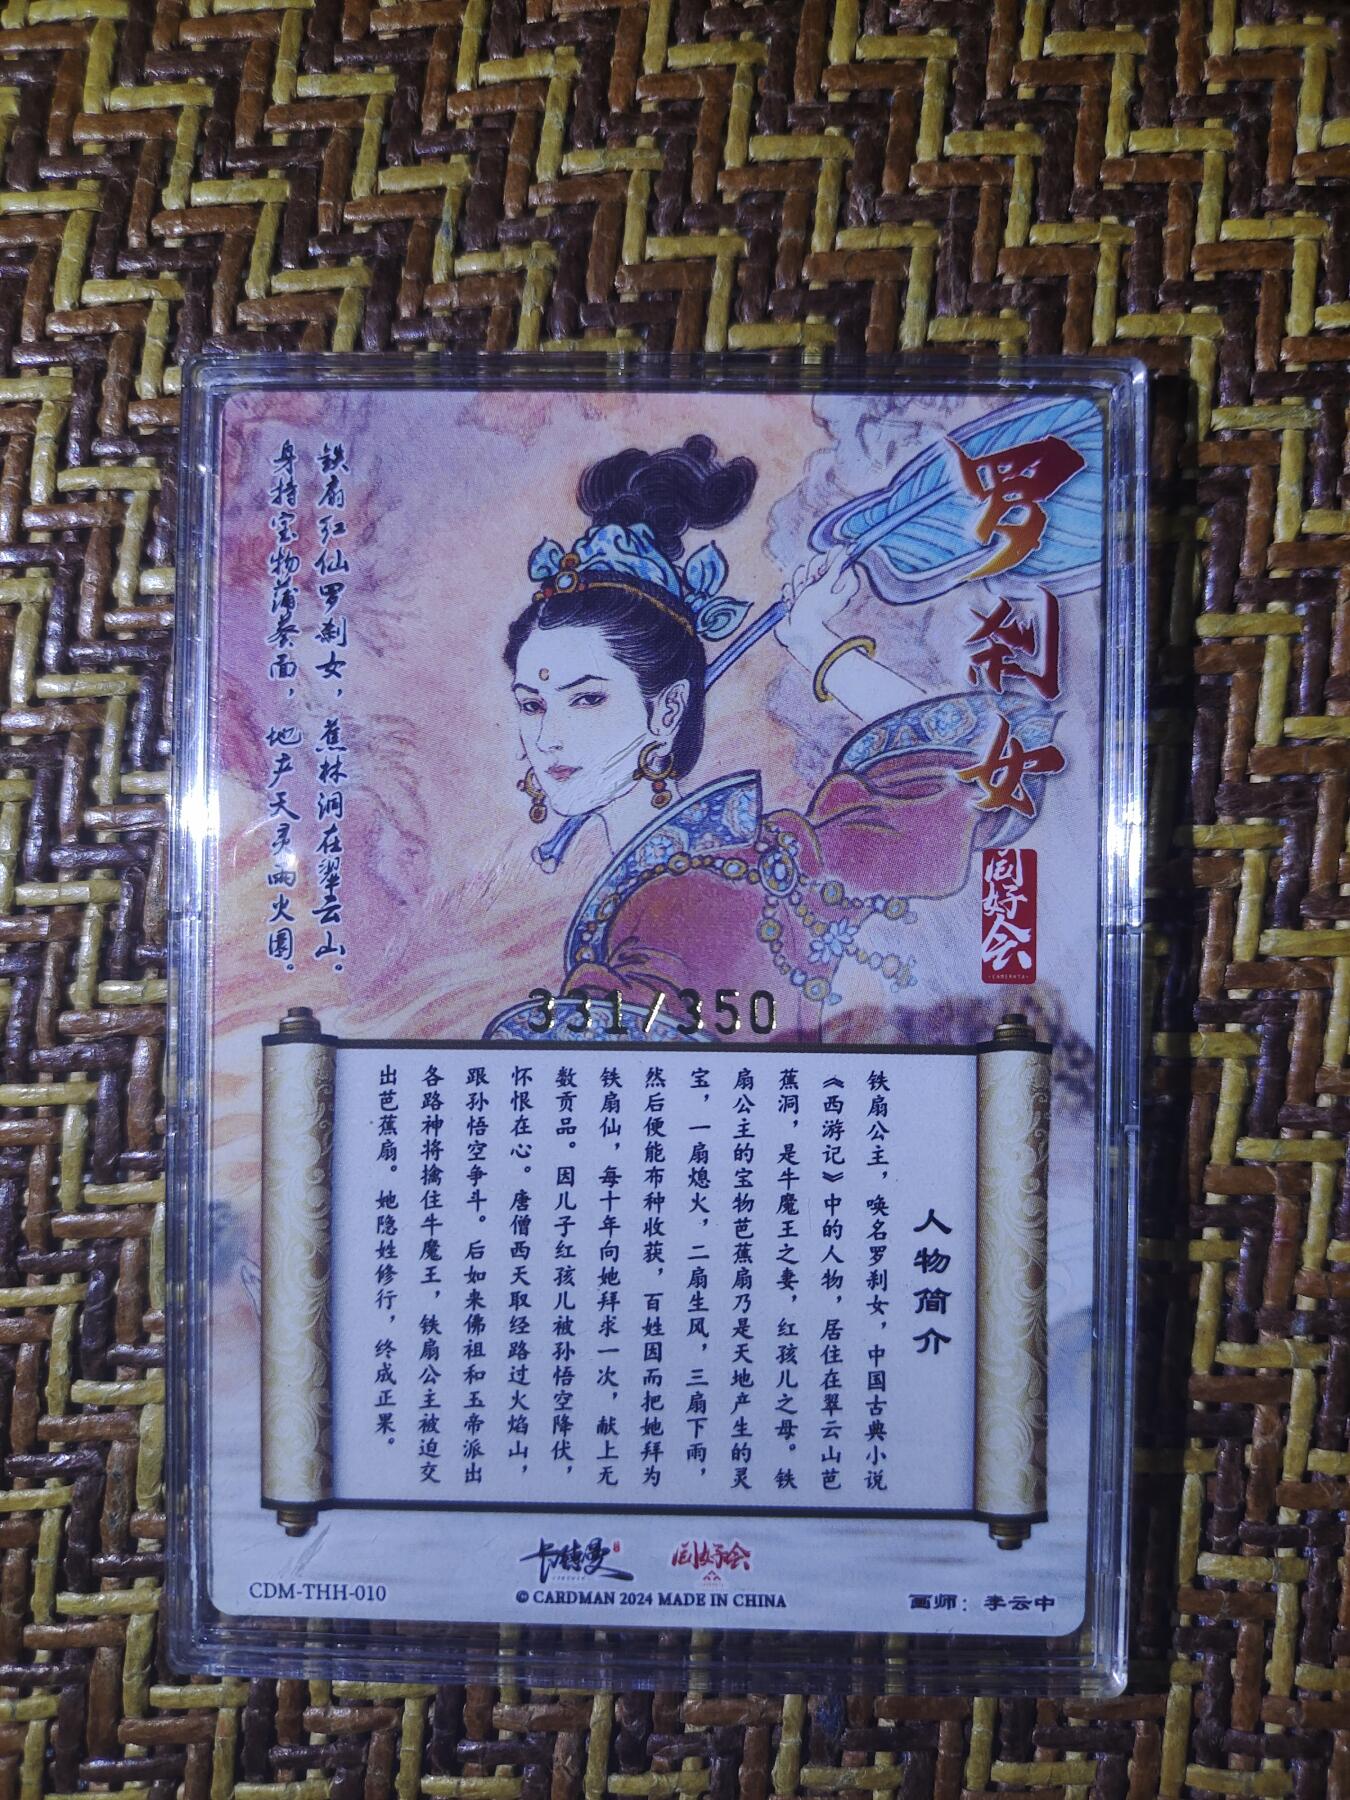 罗刹女
同好会
铁扇红仙罗刹女，蕉林洞在翠云山。
身持宝物蒲葵面，地产天灵雨火园。
331/350
人物简介
铁扇公主，唤名罗刹女，中国古典小说
《西游记》中的人物，居住在翠云山芭
蕉洞，是牛魔王之妻，红孩儿之母。铁
扇公主的宝物芭蕉扇乃是天地产生的灵
宝，一扇熄火，二扇生风，三扇下雨，
然后便能布种收获，百姓因而把她拜为
铁扇仙，每十年向她拜求一次，献上无
数贡品。因儿子红孩儿被孙悟空降伏，
怀恨在心。唐僧西天取经路过火焰山，
跟孙悟空争斗。后如来佛祖和玉帝派出
各路神将擒住牛魔王，铁扇公主被迫交
出芭蕉扇。她隐姓修行，终成正果。
卡德曼 同好会
CDM-THH-010
© CARDMAN 2024 MADE IN CHINA
画师：李云中